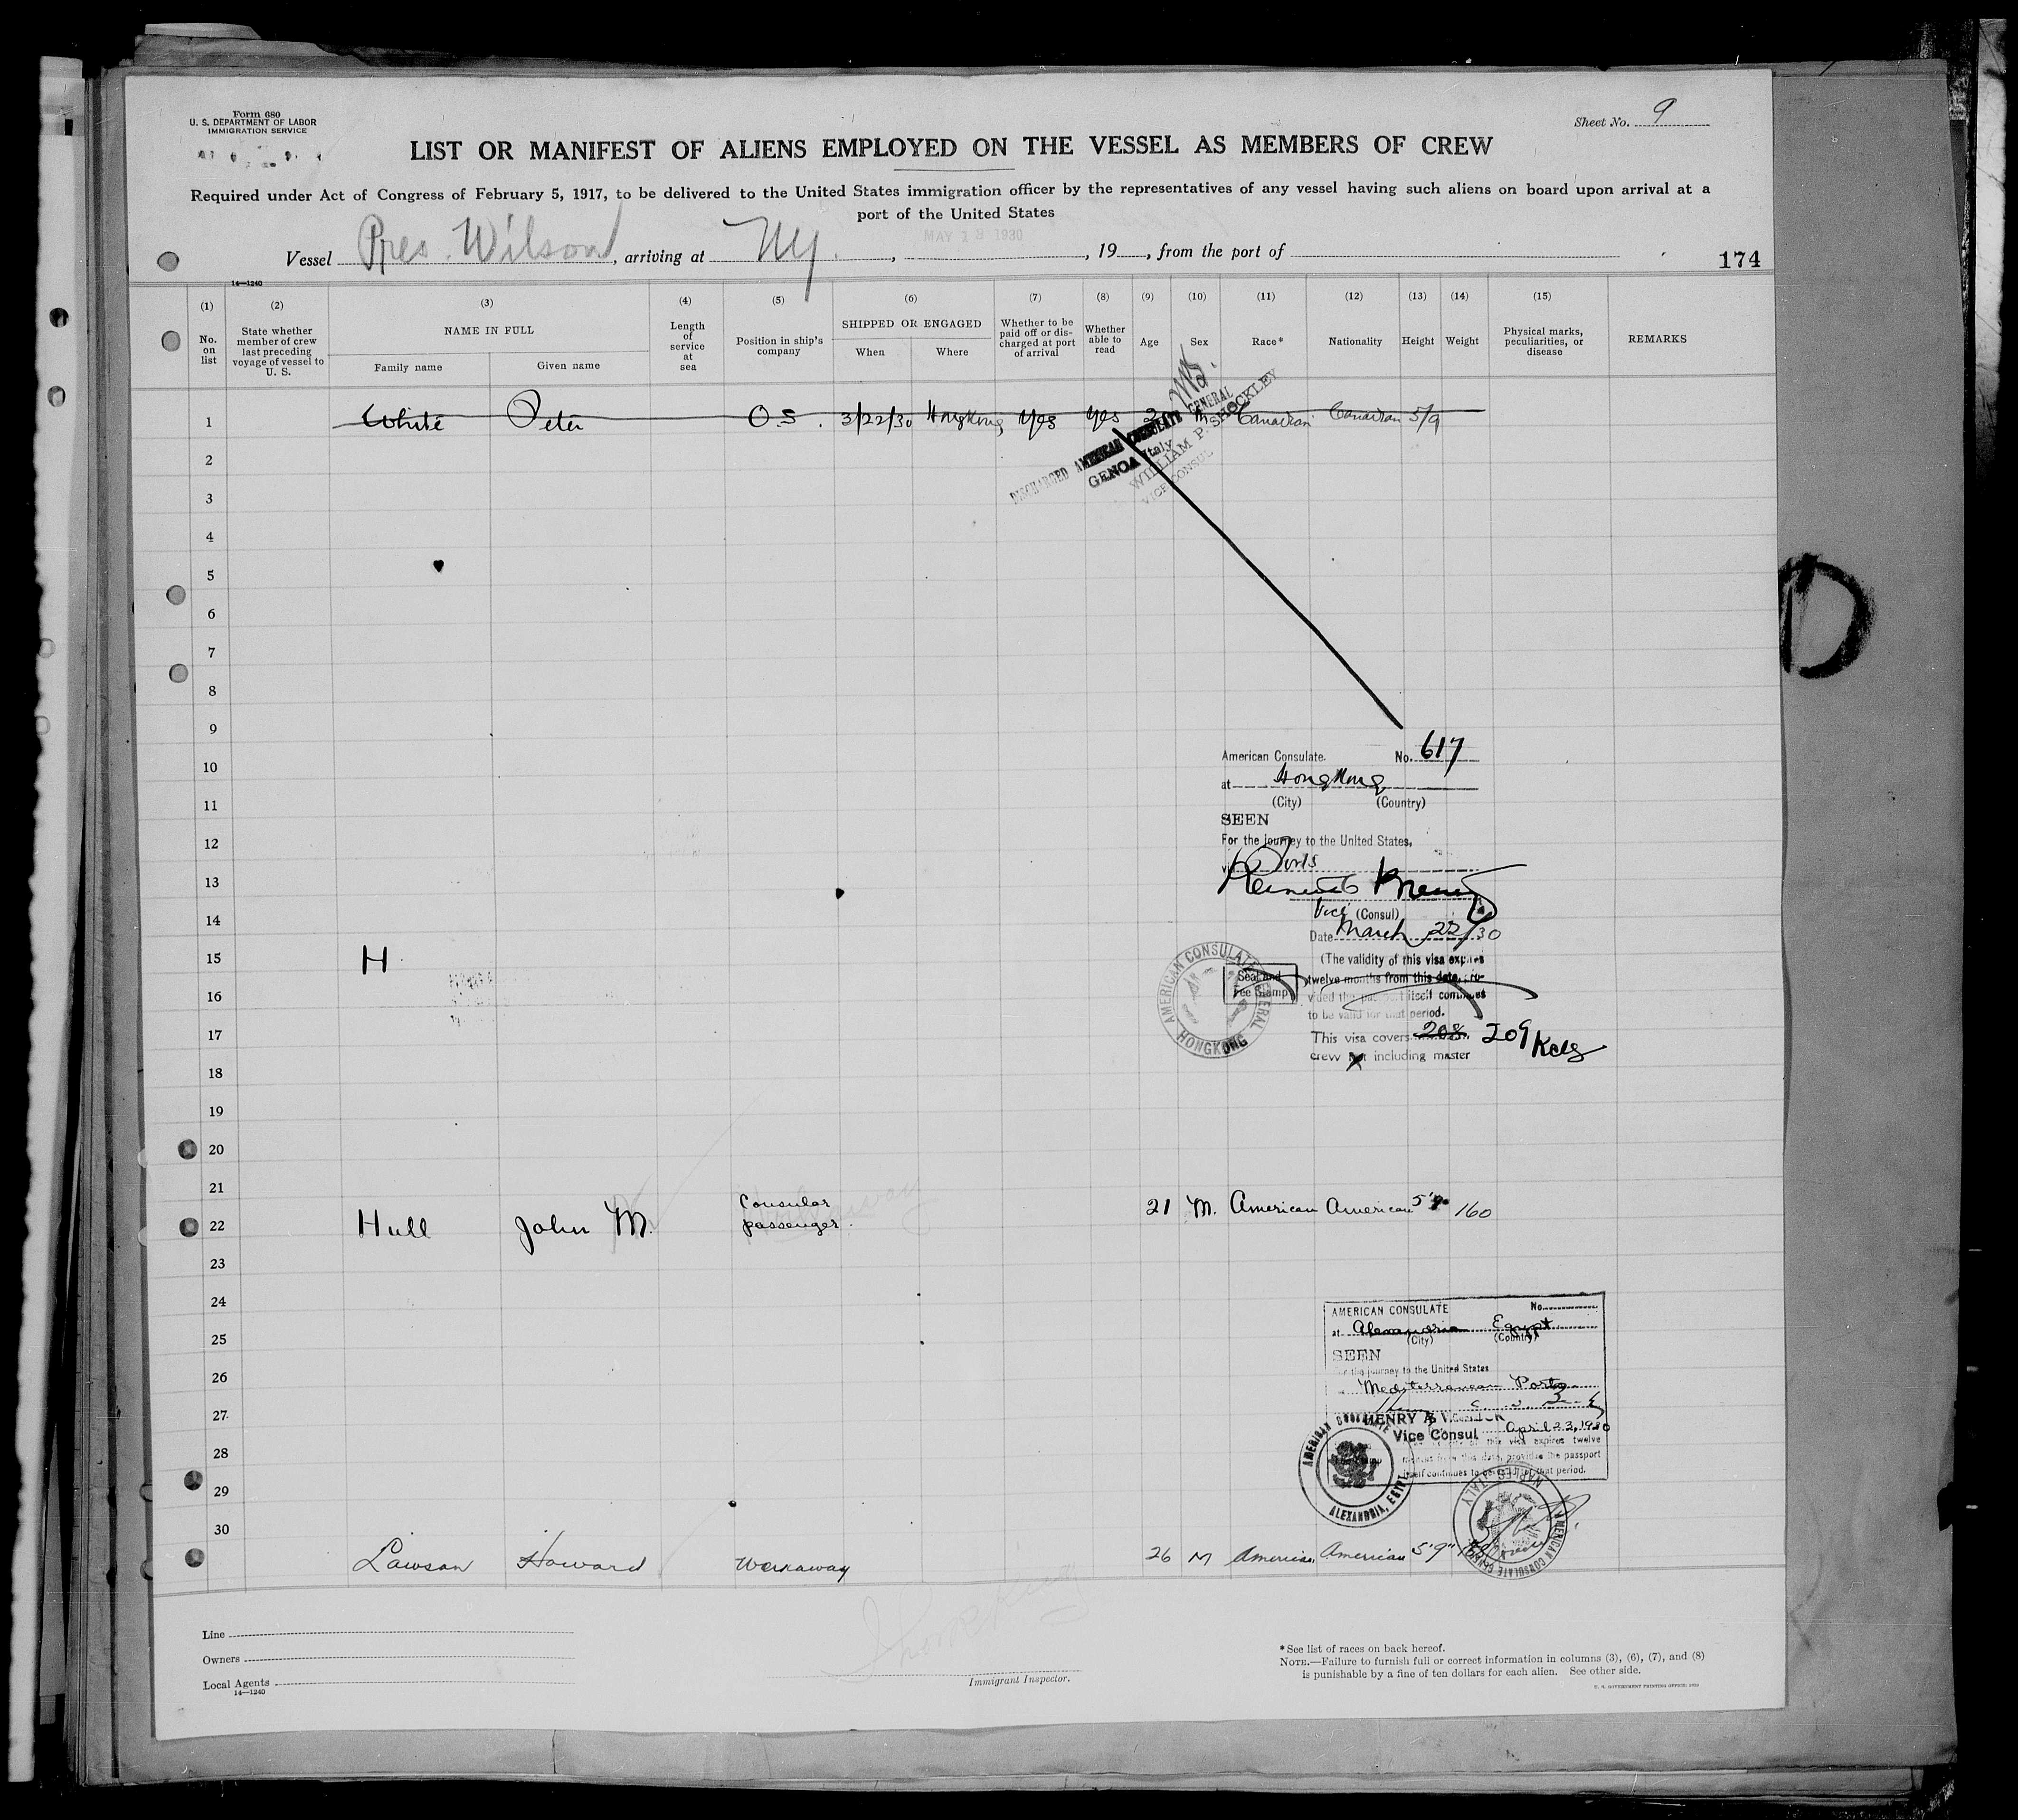 Form 680
U. S. DEPARTMENT OF LABOR
IMMIGRATION SERVICE
Sheet No. 9
LIST OR MANIFEST OF ALIENS EMPLOYED ON THE VESSEL AS MEMBERS OF CREW
Required under Act of Congress of February 5, 1917, to be delivered to the United States immigration officer by the representatives of any vessel having such aliens on board upon arrival at a
port of the United States
MAY 18 1930
Vessel Pres. Wilson, arriving at NY. , , 19 , from the port of
174
14—1240
(1) (2) (3) (4) (5) (6) (7) (8) (9) (10) (11) (12) (13) (14) (15)
No. on list
State whether member of crew last preceding voyage of vessel to U. S.
NAME IN FULL
Family name Given name
Length of service at sea
Position in ship's company
SHIPPED OR ENGAGED
When Where
Whether to be paid off or discharged at port of arrival
Whether able to read
Age Sex Race* Nationality Height Weight
Physical marks, peculiarities, or disease
REMARKS
1 White Peter O.S. 3/22/30 HongKong Yes Yes Canadian Canadian 5/9
DISCHARGED AMERICAN CONSULATE GENERAL
GENOA Italy
WILLIAM P. SHOCKLEY
VICE CONSUL
2
3
4
5
6
7
8
9
10
11
12
13
14
15 H
16
17
18
19
20
21
American Consulate No. 617
at HongKong
(City) (Country)
SEEN
For the journey to the United States,
via Ports
Vice (Consul)
Date March 22/30
(The validity of this visa expires
twelve months from this date, pro-
vided the passport itself continues
to be valid for that period.
This visa covers 208 209 
crew not including master
Seal and
Fee Stamp
AMERICAN CONSULATE GENERAL
HONGKONG
22 Hull John M. Consular passenger. 21 M. American American 160
23
24
25
26
27
28
29
30
AMERICAN CONSULATE No.
at Alexandria Egypt
(City) (Country)
SEEN
For the journey to the United States
Mediterranean Ports
HENRY
Vice Consul April 23, 1930
this visa expires twelve
months from this date, provided the passport
itself continues to be valid for that period.
AMERICAN CONSULATE
ALEXANDRIA, EGYPT
AMERICAN CONSULATE GENERAL
NAPLES ITALY
Lawson Howard Workaway 26 M American American 5'9"
Line
Owners
Local Agents
14—1240
Immigrant Inspector.
*See list of races on back hereof.
NOTE.—Failure to furnish full or correct information in columns (3), (6), (7), and (8)
is punishable by a fine of ten dollars for each alien. See other side.
U. S. GOVERNMENT PRINTING OFFICE: